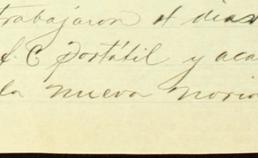 trabajaron el dias
S. C Portátil y aca
la nueva noria